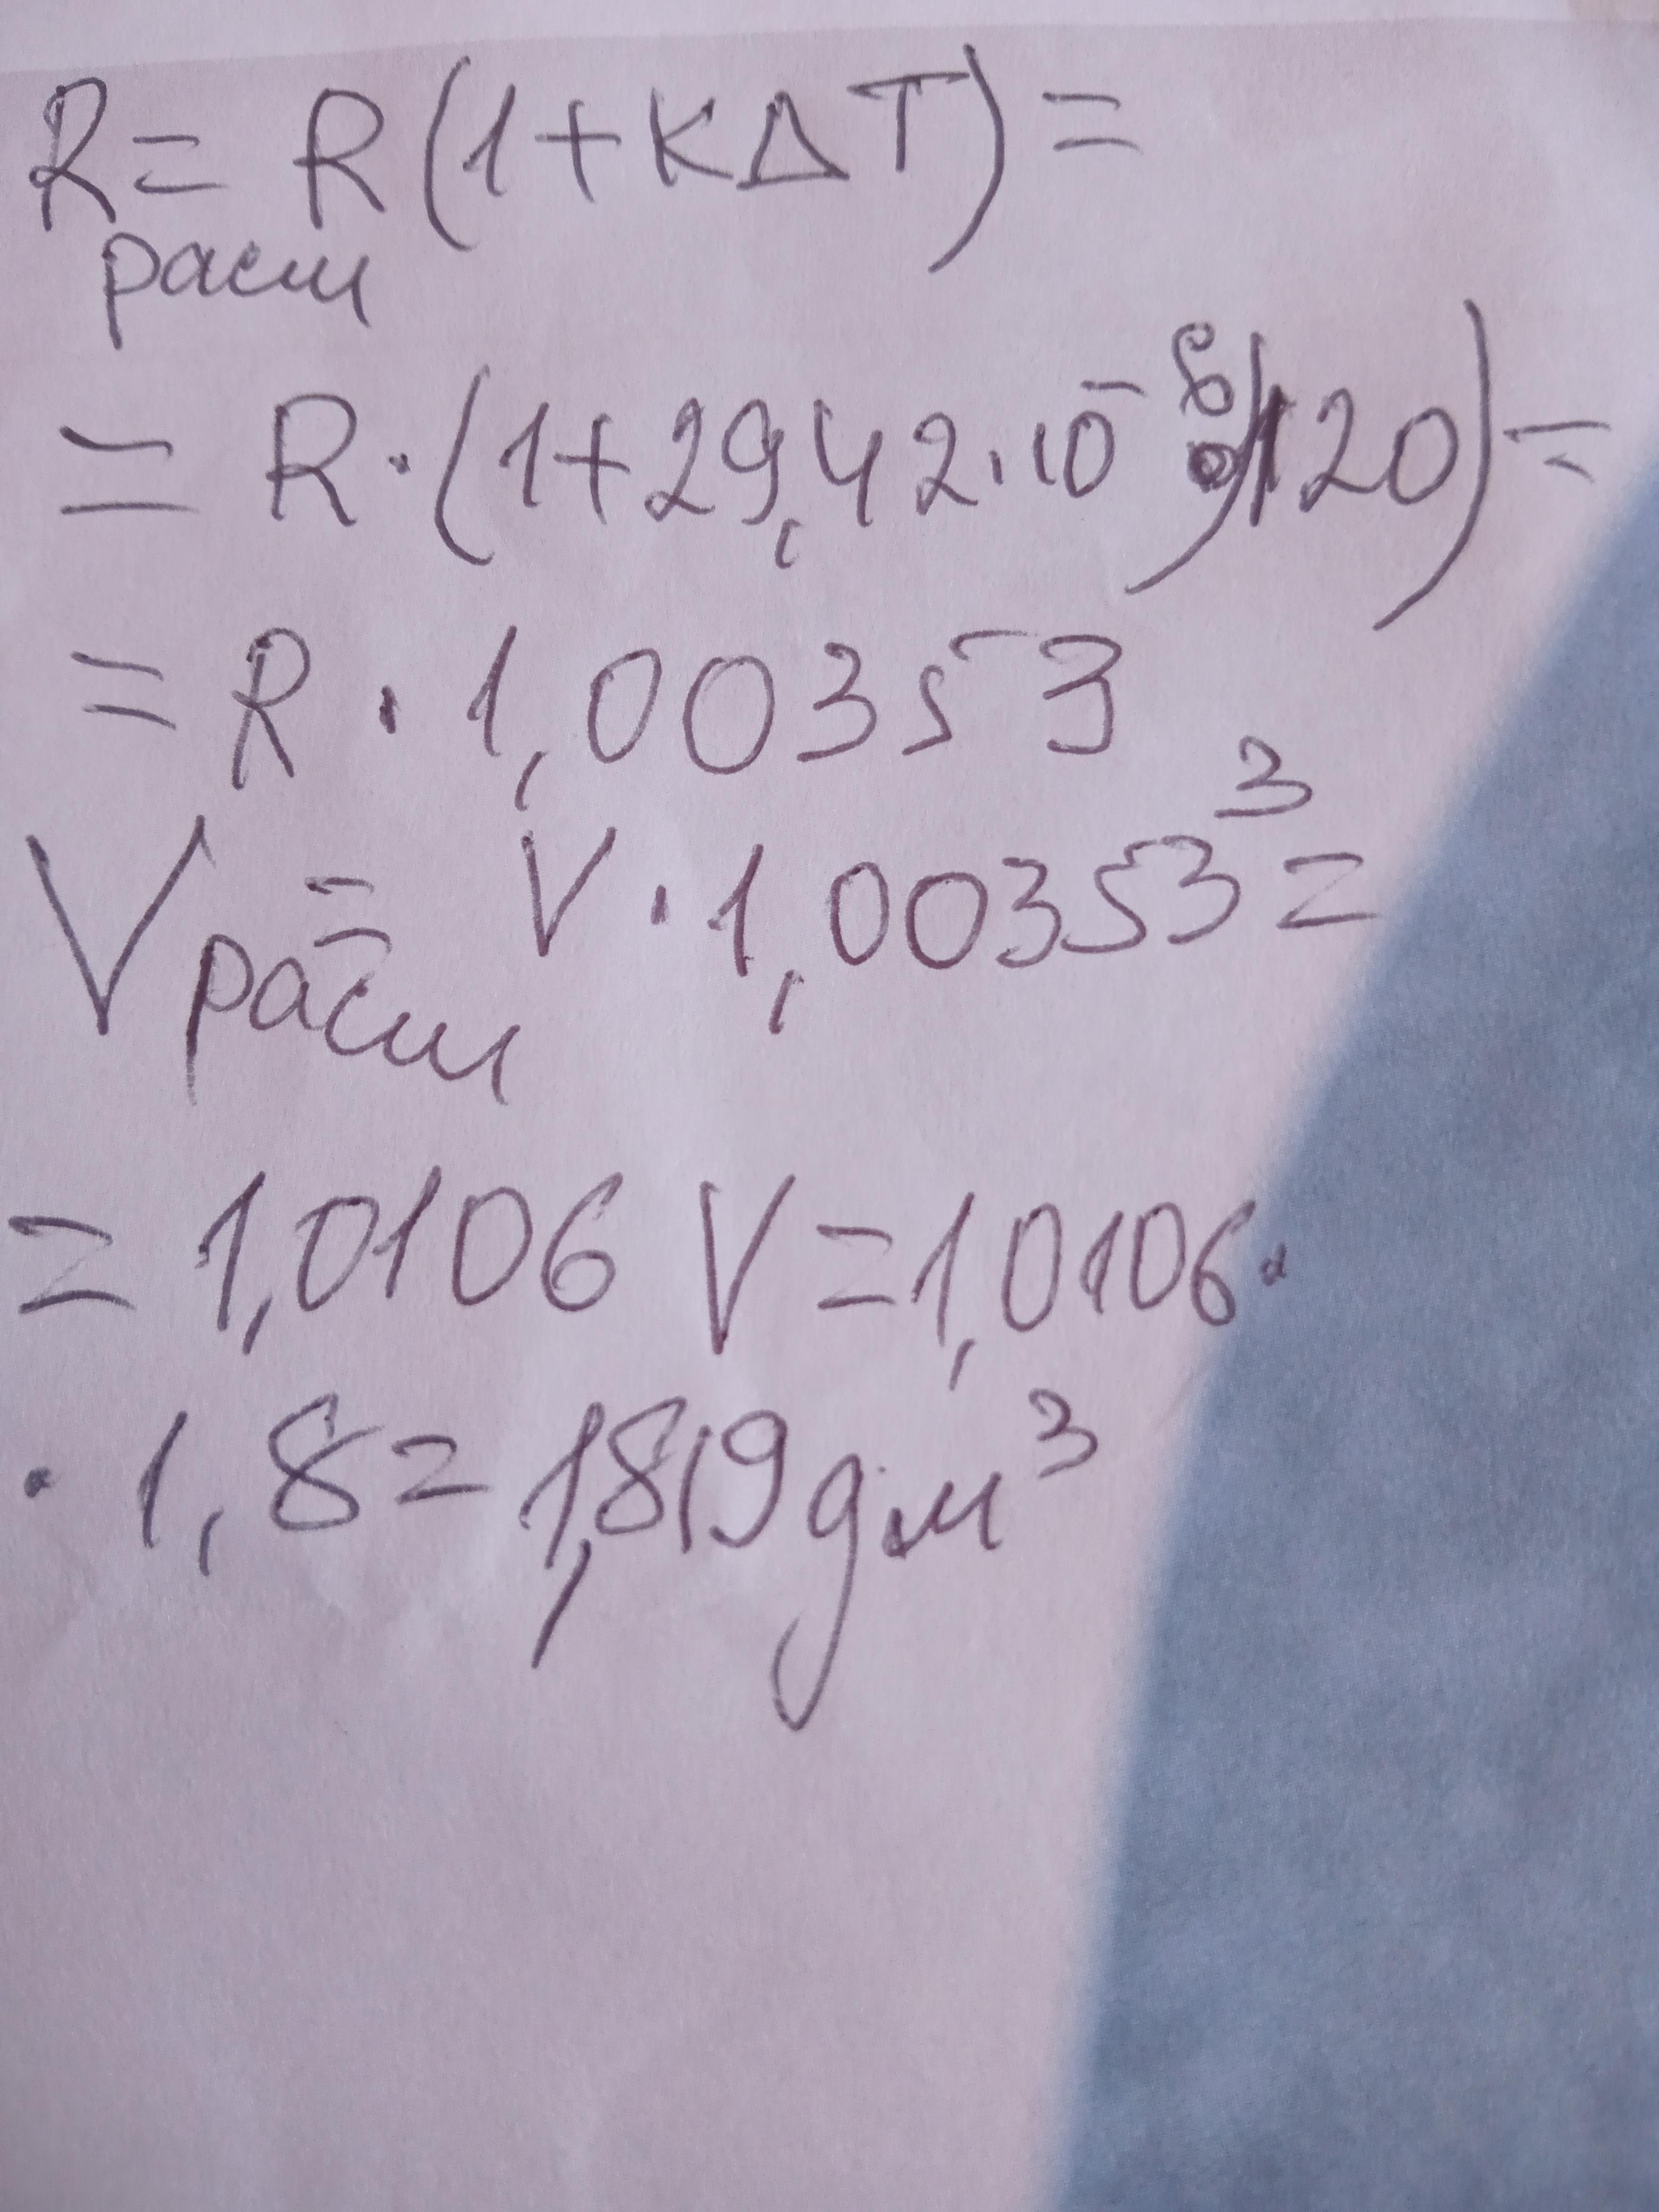 R = R(1+KΔT)=
расш
= R·(1+29,42·10⁻⁶)120)=
= R·1,00353
V расш = V·1,00353³=
= 1,0106 V = 1,0106·
· 1,8 = 1,819 дм³